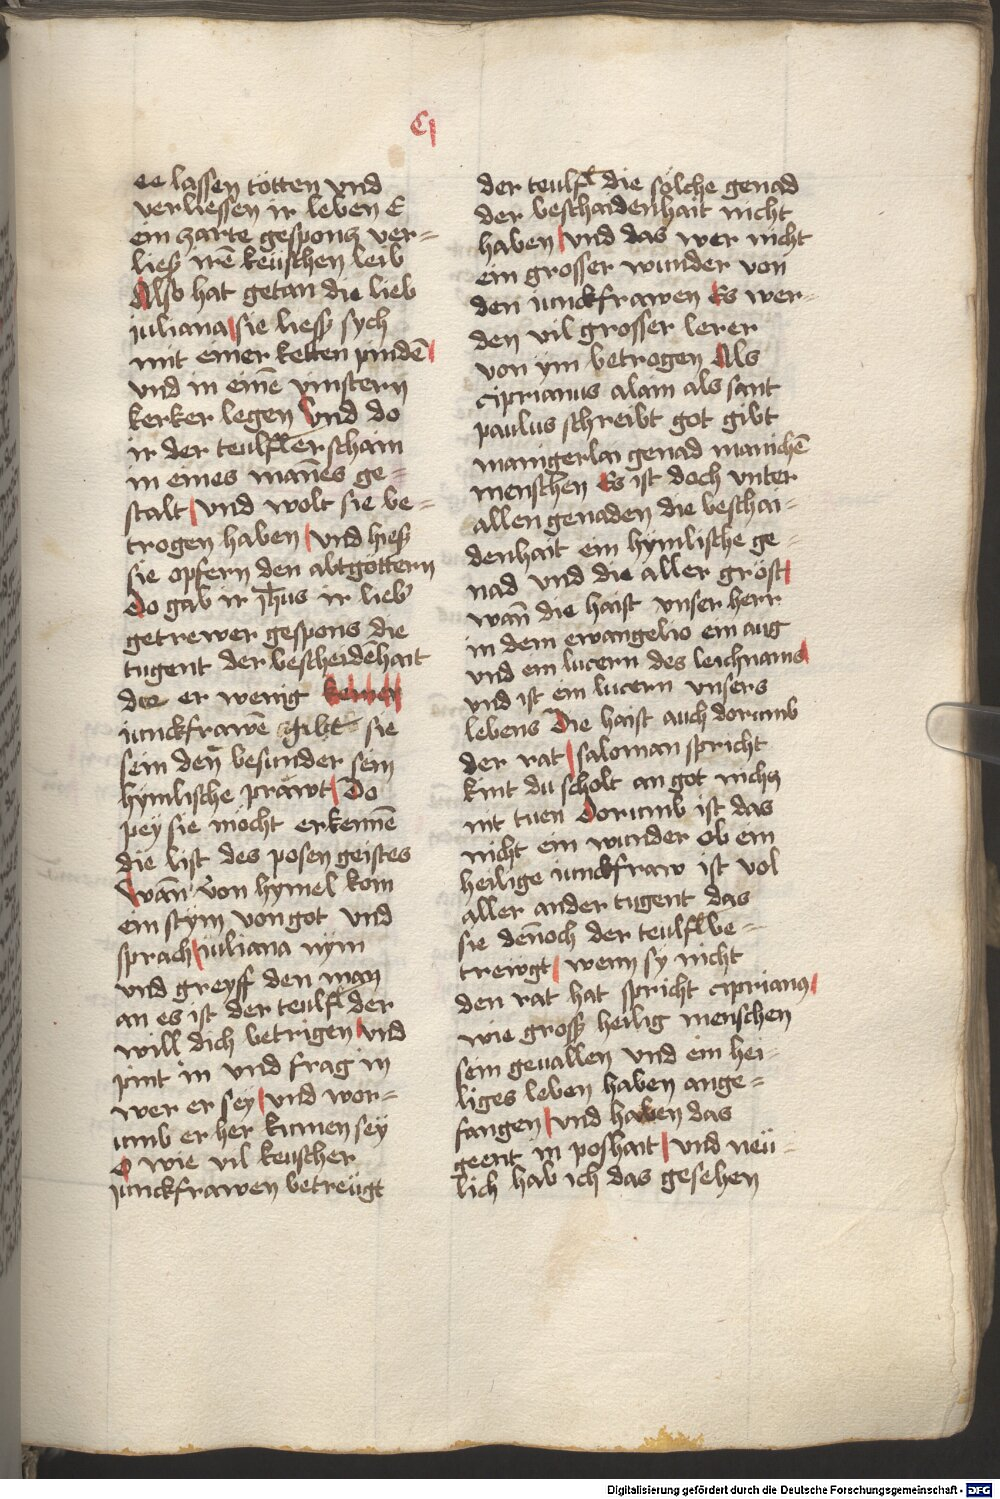 Cj
ee lassen totten vnd
verliessen ir leben E
ein zarte gespons ver=
lies irē keuschen leib
Also hat getan die lieb
juliana sie liess sych
mit einer ketten pindē
vnd in einē vinstern
kerker legen Vnd do
ir der teulfl erschain
in eines mañes ge=
stalt vnd wolt sie be=
trogen haben vnd hies
sie opfern den abtgöttern
Do gab ir Jhus ir lieb
getrewer gespons die
tugent der bescheidēhait
die er wenig keiner
junckfrawē gibt sie
sein deñ besunder sein
hymlische präwt Do
pey sie mocht erkennē
die list des posen geistes
Wañ von hymel kom
ein stym von got vnd
sprach juliana nym
vnd greyff den man
an es ist der teulfl der
will dich betrigen vnd
pint in vnd frag in
wer er sey vnd wor=
umb er her kumen sey
O wie vil keuscher
junckfrawen betreugt
der teulfl die solche genad
der beschaidenhait nicht
haben vnd das wer nicht
ein grosser wunder von
den junckfrawen Es wer=
den vil grosser lerer
von ym betrogen Als
ciprianus alain als sant
paulus schreibt got gibt
manigerlai genad manichē
menschen Es ist doch vnter
allen genaden die beschai=
denhait ein hymlische ge=
nad vnd die aller gröst
wañ die haist vnser herr
in dem ewangelio ein aug
vnd ein lucern des leichnams
vnd ist ein lucern vnsers
lebens Die haist auch dorumb
der rat saloman spricht
kint du scholt an got nichs
nit tuen Dorumb ist das
nicht ein wunder ob ein
heilige junckfraw ist vol
aller ander tugent das
sie deñoch der teulfl be=
trewgt wenn sy nicht
den rat hat spricht ciprianus
wie gross heilig menschen
sein geuallen vnd ein hei=
liges leben haben ange=
fangen vnd haben das
geent in poshait vnd neü=
lich hab ich das gesehen
Digitalisierung gefördert durch die Deutsche Forschungsgemeinschaft - DFG